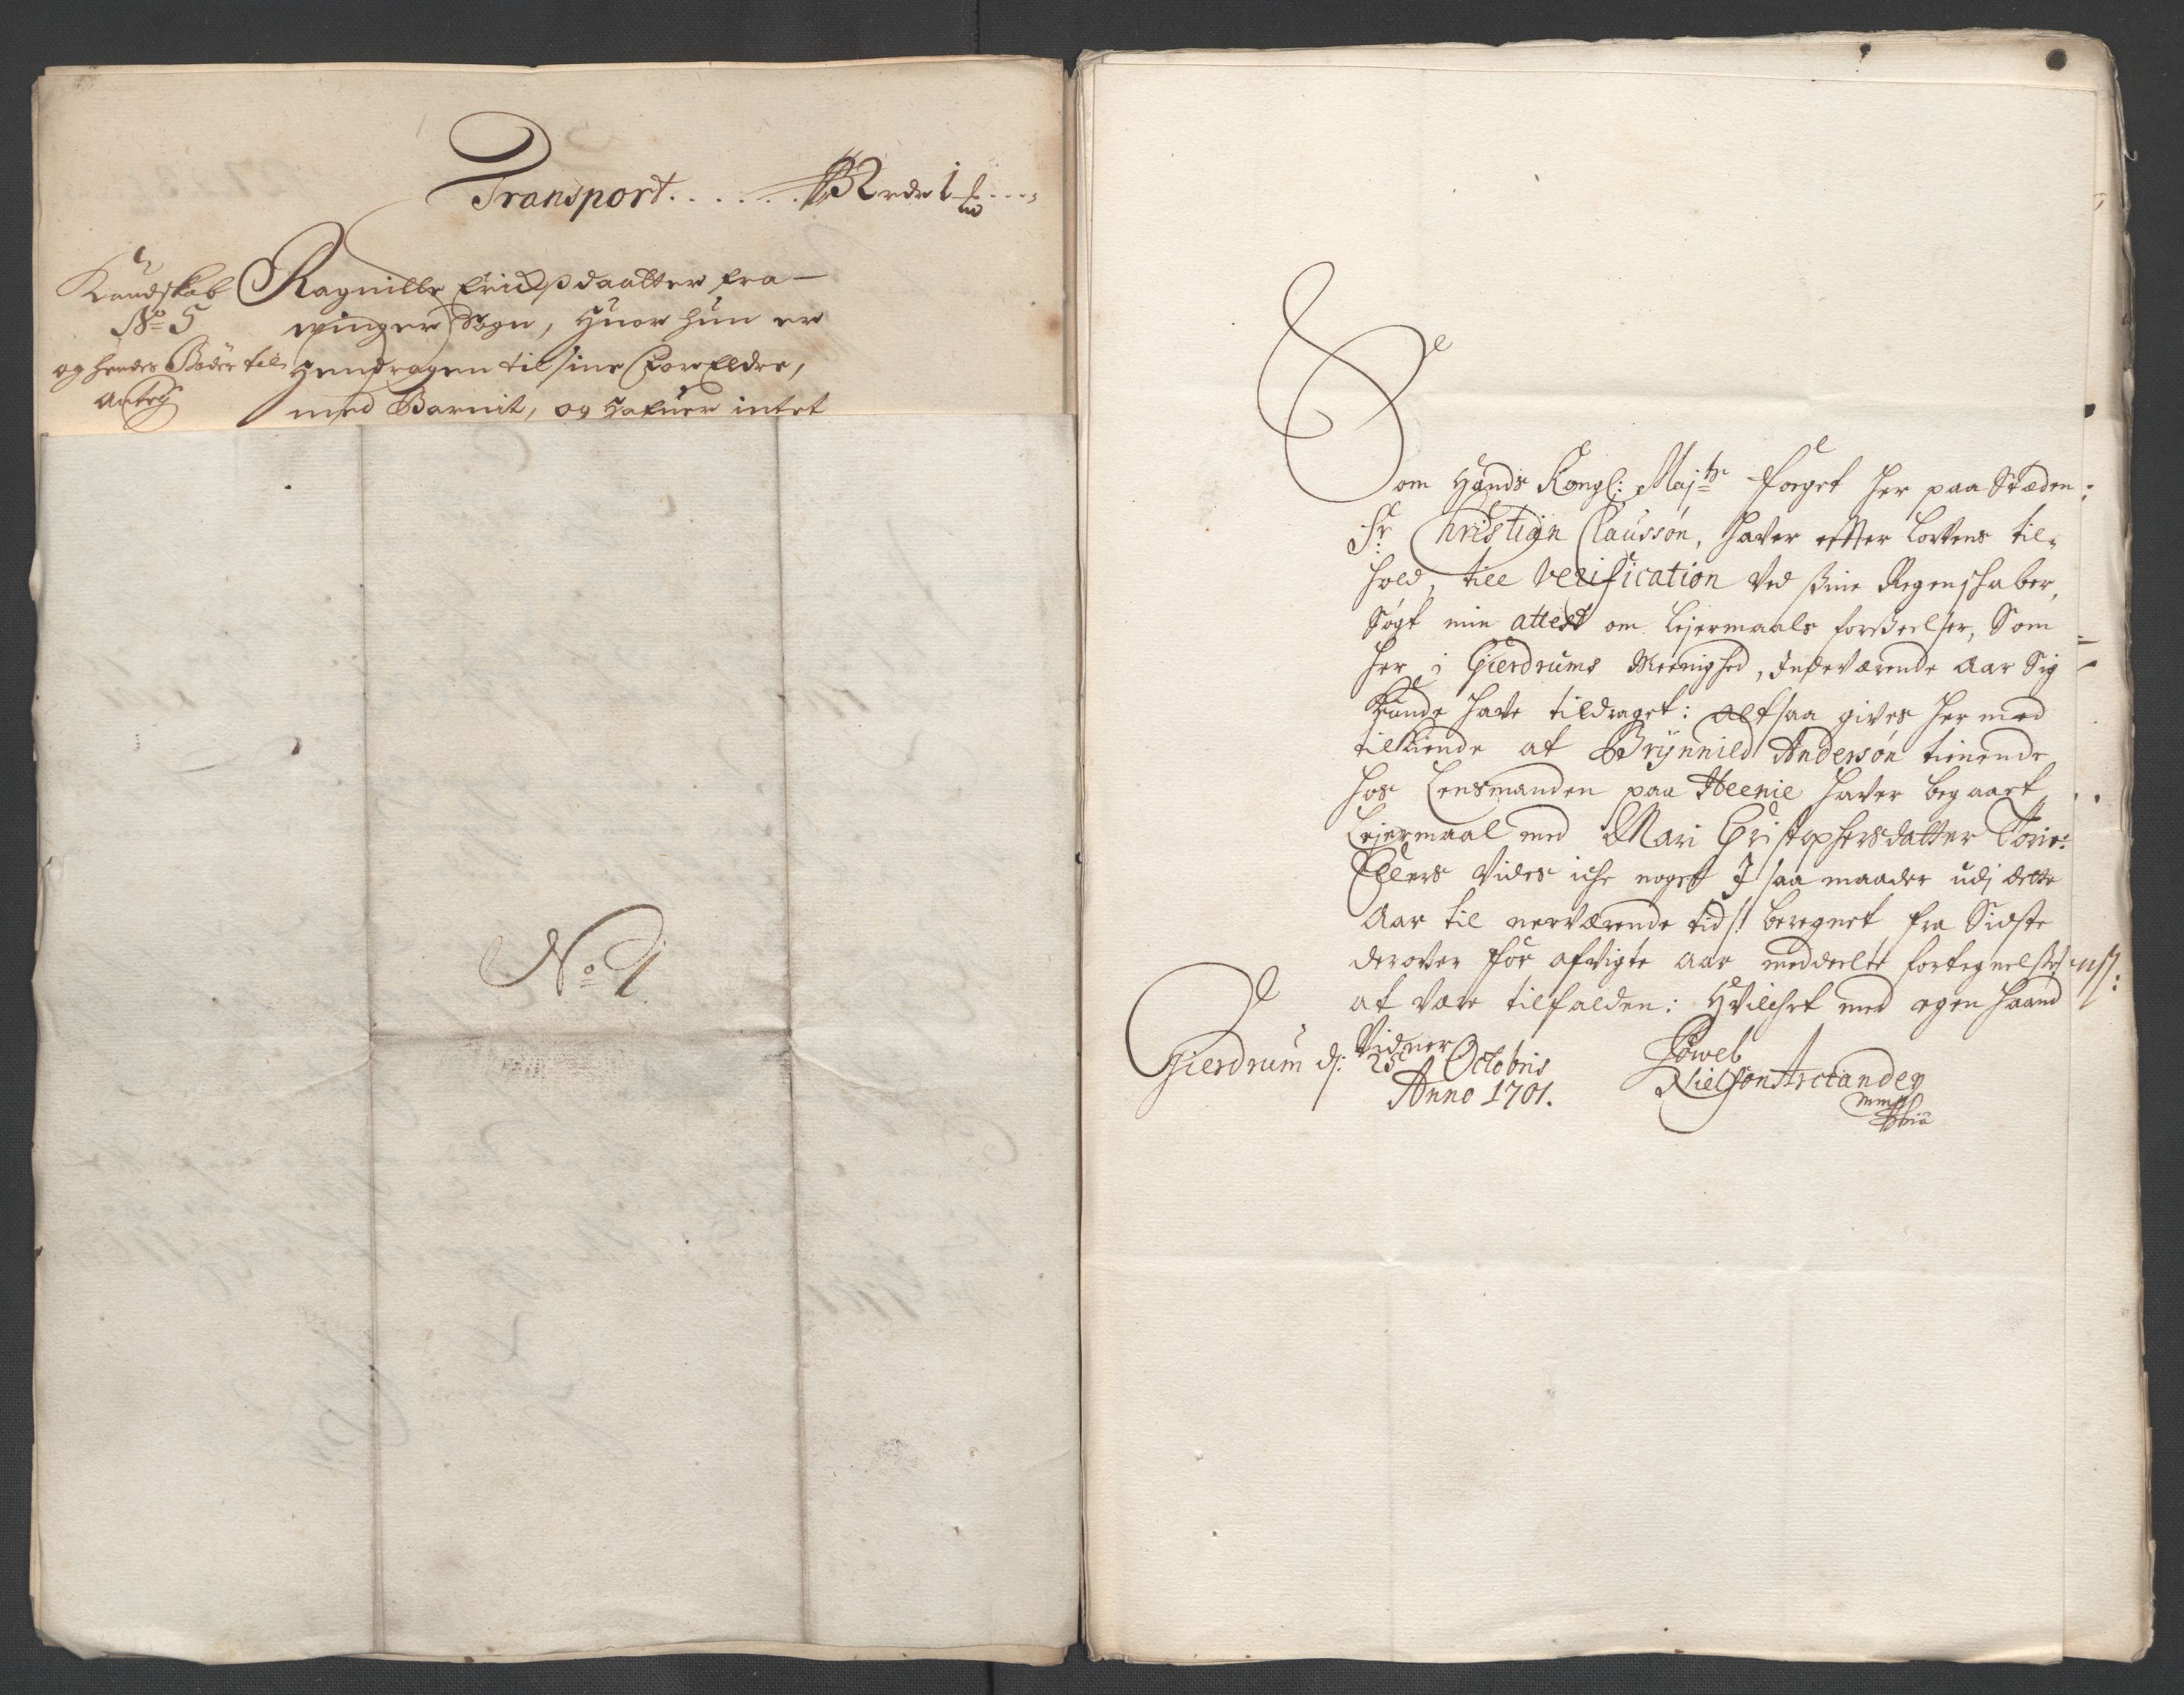 Transport . . . . . . 32 rdr 1 ß . . .
Kundskab
No 5
og hendes Bøder til
Ragnille Erichsdaatter fra
winger Sogn, huor hun er
hendragen til sine ForEldre,
med Barnit, og hafuer intet
No 1
Som Hands Kongl: Majts Foget her paa Stæden
Sr Christian Claussøn, haver effter Lovens til-
hold, till Verification ved sine Regenschaber,
Søgt min attest om Lejermaals forseelser, Som
her i Gierdrums Meenighed, Indeværende Aar Sig
kunde have tildraget: Altsaa gives her med
tilkiende at Brÿnnild Andersøn tienende
hos Lensmanden paa Heenie haver begaaet
Lejermaal med Mari Christophersdatter
Ellers Vides iche noget J saa maader udj dette
Aar til nerværende tid, beregnet fra Sidste
derover for afvigte Aar meddeelte fortegnelse
at være tilfalden: Hvilchet med egen Haand
Vidner
Gierdrum d: 25 Octobris
Anno 1701.
Powel
Nielsøn Arctander
mmpria